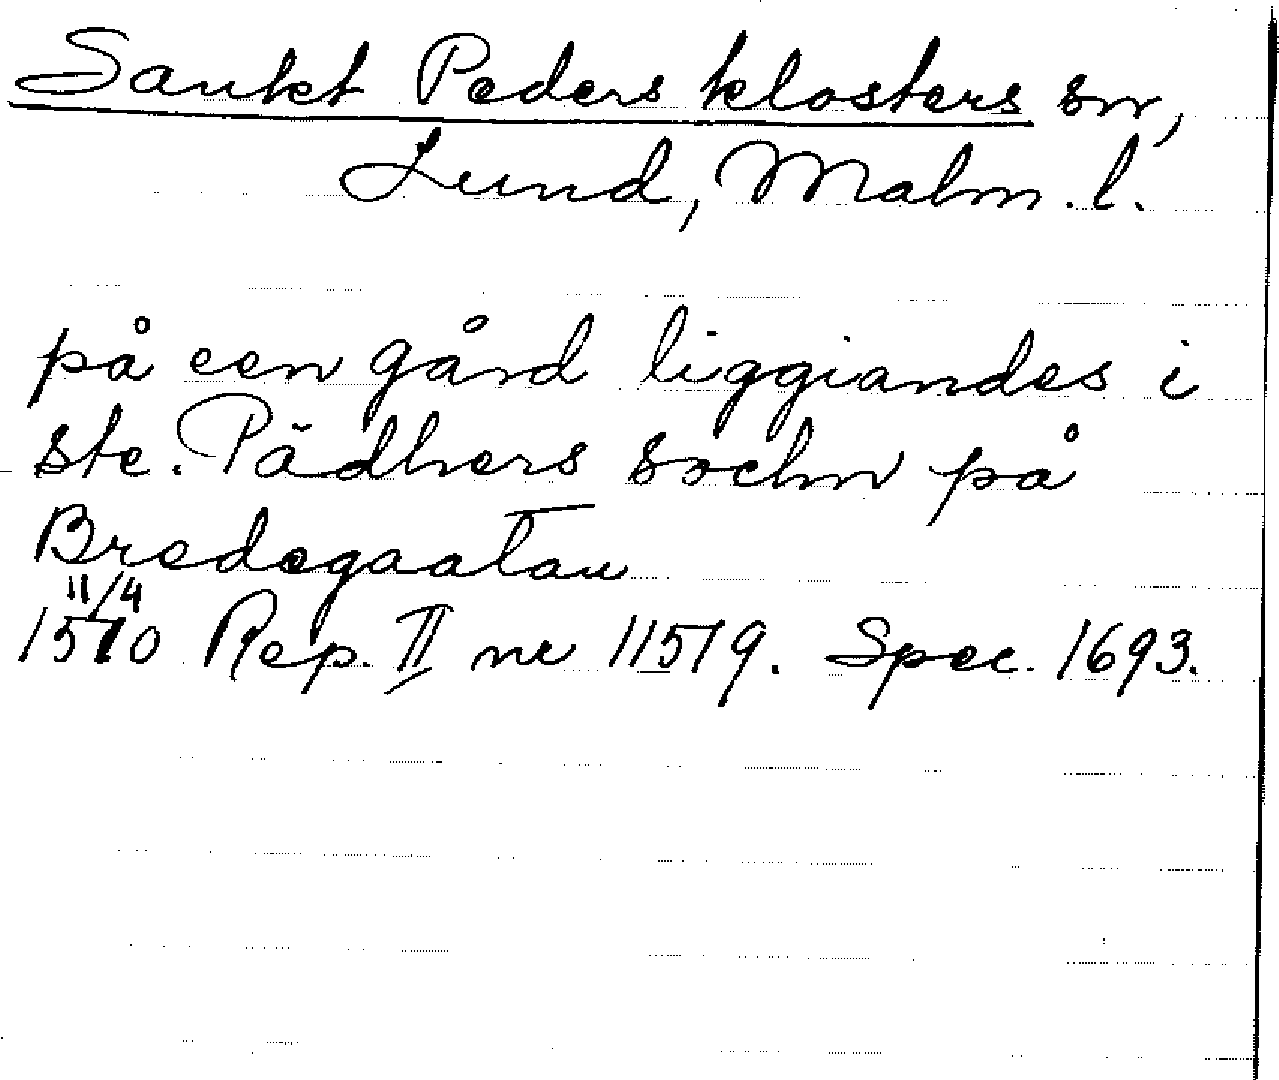 Sankt Peders klosters sn,
Lund, Malm. l.
på een gård liggiandes i
ste. Pädhers sochn på
Bredegaatan
11/4
1510 Rep. II nr 11519. Spec. 1693.